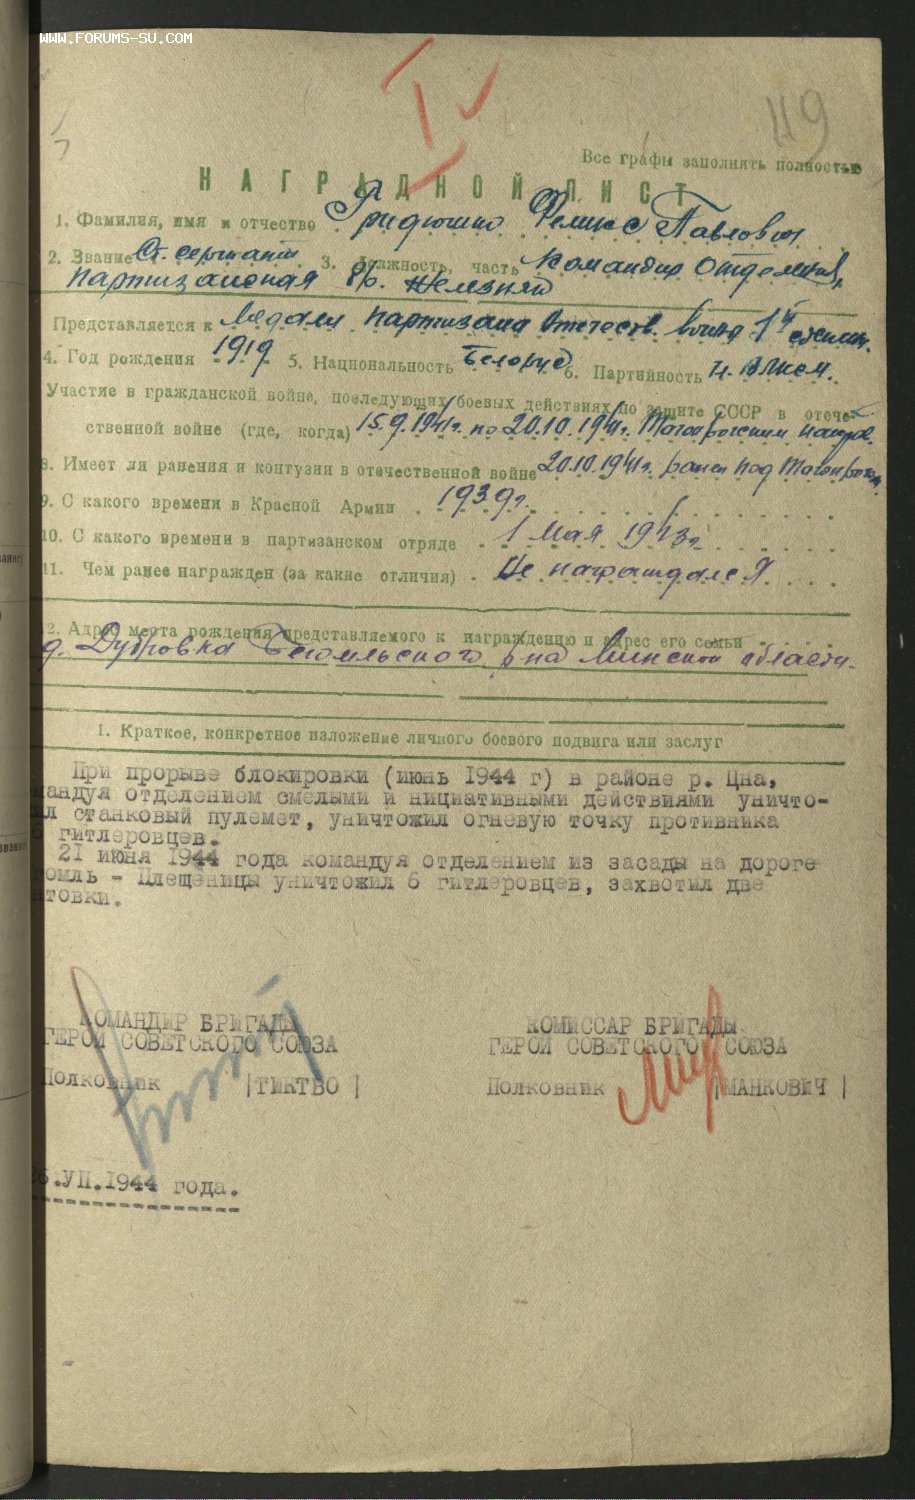 WWW.FORUMS-SU.COM
119
Все графы заполнять полностью
НАГРАДНОЙ ЛИСТ
1. Фамилия, имя и отчество Феликс Павлович
2. Звание Ст. сержант 3. Должность, часть Командир отделения,
партизанская бр. Железняк
Представляется к медали партизана Отечеств. войны 1й степени.
4. Год рождения 1919 5. Национальность Белорус 6. Партийность чл. ВЛКСМ.
Участие в гражданской войне, последующих боевых действиях по защите СССР в отече-
ственной войне (где, когда) 15.9.1941г. по 20.10.1941г. Таганрогским направ.
8. Имеет ли ранения и контузии в отечественной войне 20.10.1941г. ранен под Таганрогом.
9. С какого времени в Красной Армии 1939г.
10. С какого времени в партизанском отряде 1 мая 1943г.
11. Чем ранее награжден (за какие отличия) Не награждался
12. Адрес места рождения представляемого к награждению и адрес его семьи
д. Дубровка Бегомльского р-на Минской области.
1. Краткое, конкретное изложение личного боевого подвига или заслуг
При прорыве блокировки (июнь 1944 г) в районе р. Цна,
мандуя отделением смелыми и нициативными действиями уничто-
ил станковый пулемет, уничтожил огневую точку противника
гитлеровцев.
21 июня 1944 года командуя отделением из засады на дороге
гомль - Плещеницы уничтожил 6 гитлеровцев, захвотил две
нтовки.
КОМАНДИР БРИГАДЫ
ГЕРОЙ СОВЕТСКОГО СОЮЗА
Полковник |ТИТКОВ|
КОМИССАР БРИГАДЫ
ГЕРОЙ СОВЕТСКОГО СОЮЗА
Полковник |МАНКОВИЧ|
26.УП.1944 года.